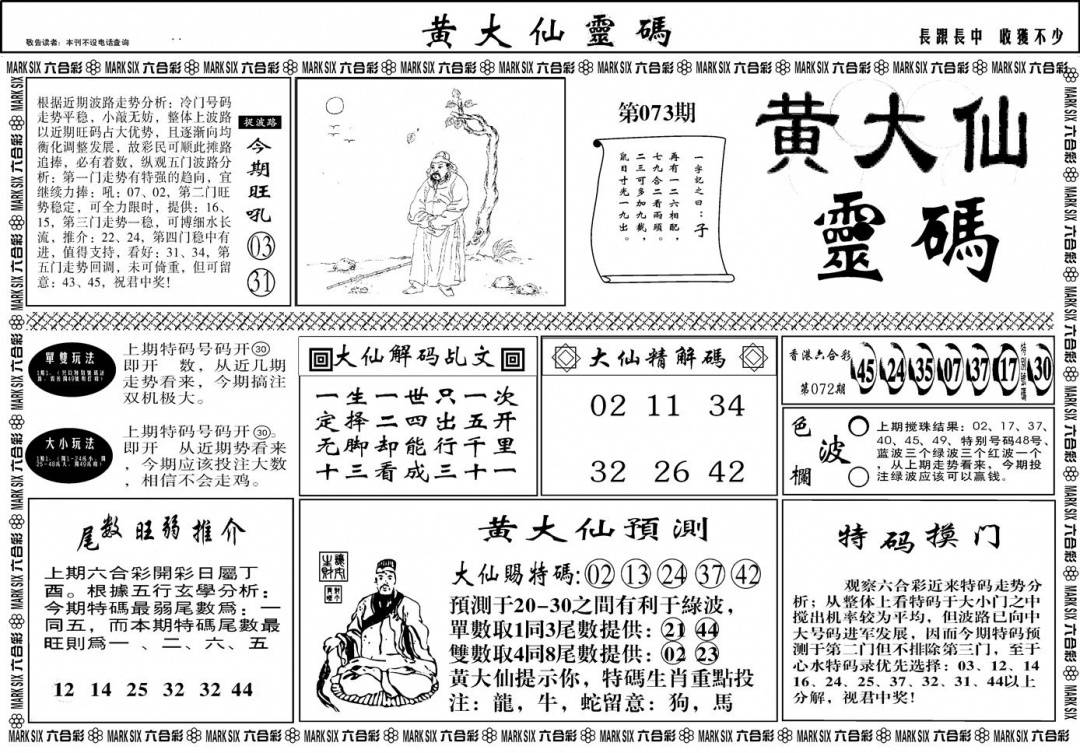 敬告读者：本刊不设电话查询
黃大仙靈碼
長跟長中 收獲不少
MARK SIX 六合彩 MARK SIX 六合彩 MARK SIX 六合彩 MARK SIX 六合彩 MARK SIX 六合彩 MARK SIX 六合彩 MARK SIX 六合彩 MARK SIX 六合彩 MARK SIX 六合彩 MARK SIX 六合彩 MARK SIX 六合彩
根据近期波路走势分析：冷门号码
走势平稳，小敲无妨，整体上波路
以近期旺码占大优势，且逐渐向均
衡化调整发展，故彩民可顺此摊路
追捧，必有着数，纵观五门波路分
析：第一门走势有特强的趋向，宜
继续力捧：吼：07、02，第二门旺
势稳定，可全力限时，提供：16、
15，第三门走势一稳，可博细水长
流，推介：22、24，第四门稳中有
进，值得支持，看好：31、34，第
五门走势回调，未可倚重，但可留
意：43、45，祝君中奖！
捉波路
今期旺吼
03
31
第073期
一字记之曰：子
再有一二六相配，
七九合二看两頭。
二三可多加九截，
鼠目寸光一九出。
黃大仙
靈碼
單雙玩法
上期特码号码开㉚
即开 数，从近几期
走势看来，今期搞注
双机极大。
大小玩法
上期特码号码开㉚。
即开 从近期势看来
，今期应该投注大数
，相信不会走鸡。
大仙解码乩文
一生一世只一次
定择二四出五开
无脚却能行千里
十三看成三十一
大仙精解碼
02 11 34
32 26 42
香港六合彩
第072期
45 24 35 07 37 17 特别號碼 30
色波欄
上期搅珠结果：02、17、37、
40、45、49、特别号码48号、
蓝波三个绿波三个红波一个
，从上期走势看来，今期投
注绿波应该可以赢钱。
尾数旺弱推介
上期六合彩開彩日屬丁
酉。根據五行玄學分析：
今期特碼最弱尾數爲：一
同五，而本期特碼尾數最
旺則爲一 、二、六、五
12 14 25 32 32 44
黄大仙預測
大仙賜特碼：02 13 24 37 42
預測于20-30之間有利于綠波，
單數取1同3尾數提供：21 44
雙數取4同8尾數提供：02 23
黄大仙提示你，特碼生肖重點投
注：龍，牛，蛇留意：狗，馬
特码摸门
观察六合彩近来特码走势分
析；从整体上看特码于大小门之中
搅出机率较为平均，但波路已向中
大号码进军发展，因而今期特码预
测于第二门但不排除第三门，至于
心水特码录优先选择：03、12、14
16、24、25、37、32、31、44以上
分解，视君中奖！
MARK SIX 六合彩 MARK SIX 六合彩 MARK SIX 六合彩 MARK SIX 六合彩 MARK SIX 六合彩 MARK SIX 六合彩 MARK SIX 六合彩 MARK SIX 六合彩 MARK SIX 六合彩 MARK SIX 六合彩 MARK SIX 六合彩